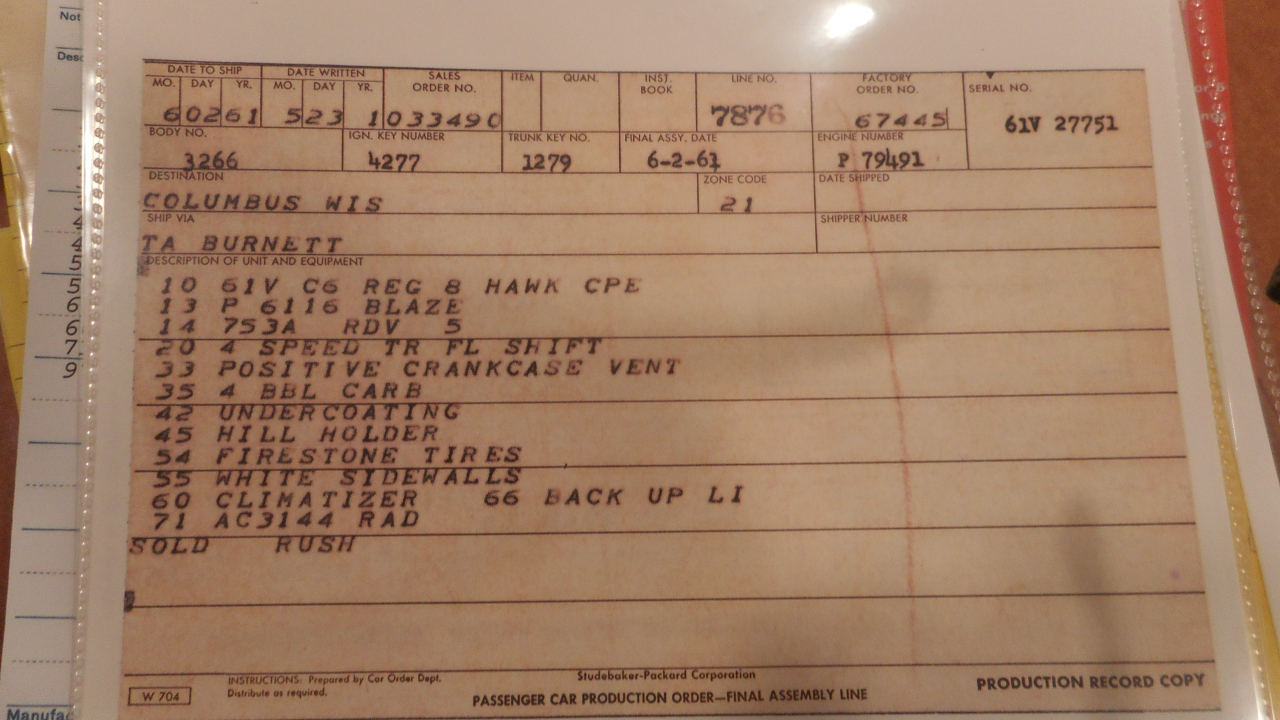 Not
Desc
DATE TO SHIP DATE WRITTEN SALES ORDER NO. ITEM QUAN. INST. BOOK LINE NO. FACTORY ORDER NO. SERIAL NO.
MO. DAY YR. MO. DAY YR.
60261 523 1 033490 7876 67445 61V 27751
BODY NO. IGN. KEY NUMBER TRUNK KEY NO. FINAL ASSY. DATE ENGINE NUMBER
3266 4277 1279 6-2-61 P 79491
DESTINATION ZONE CODE DATE SHIPPED
COLUMBUS WIS 21
SHIP VIA SHIPPER NUMBER
TA BURNETT
DESCRIPTION OF UNIT AND EQUIPMENT
10 61V C6 REG 8 HAWK CPE
13 P 6116 BLAZE
14 753A RDV 5
20 4 SPEED TR FL SHIFT
33 POSITIVE CRANKCASE VENT
35 4 BBL CARB
42 UNDERCOATING
45 HILL HOLDER
54 FIRESTONE TIRES
55 WHITE SIDEWALLS
60 CLIMATIZER 66 BACK UP LI
71 AC3144 RAD
SOLD RUSH
INSTRUCTIONS: Prepared by Car Order Dept.
Distribute as required.
W 704
Studebaker-Packard Corporation
PASSENGER CAR PRODUCTION ORDER—FINAL ASSEMBLY LINE
PRODUCTION RECORD COPY
Manufac